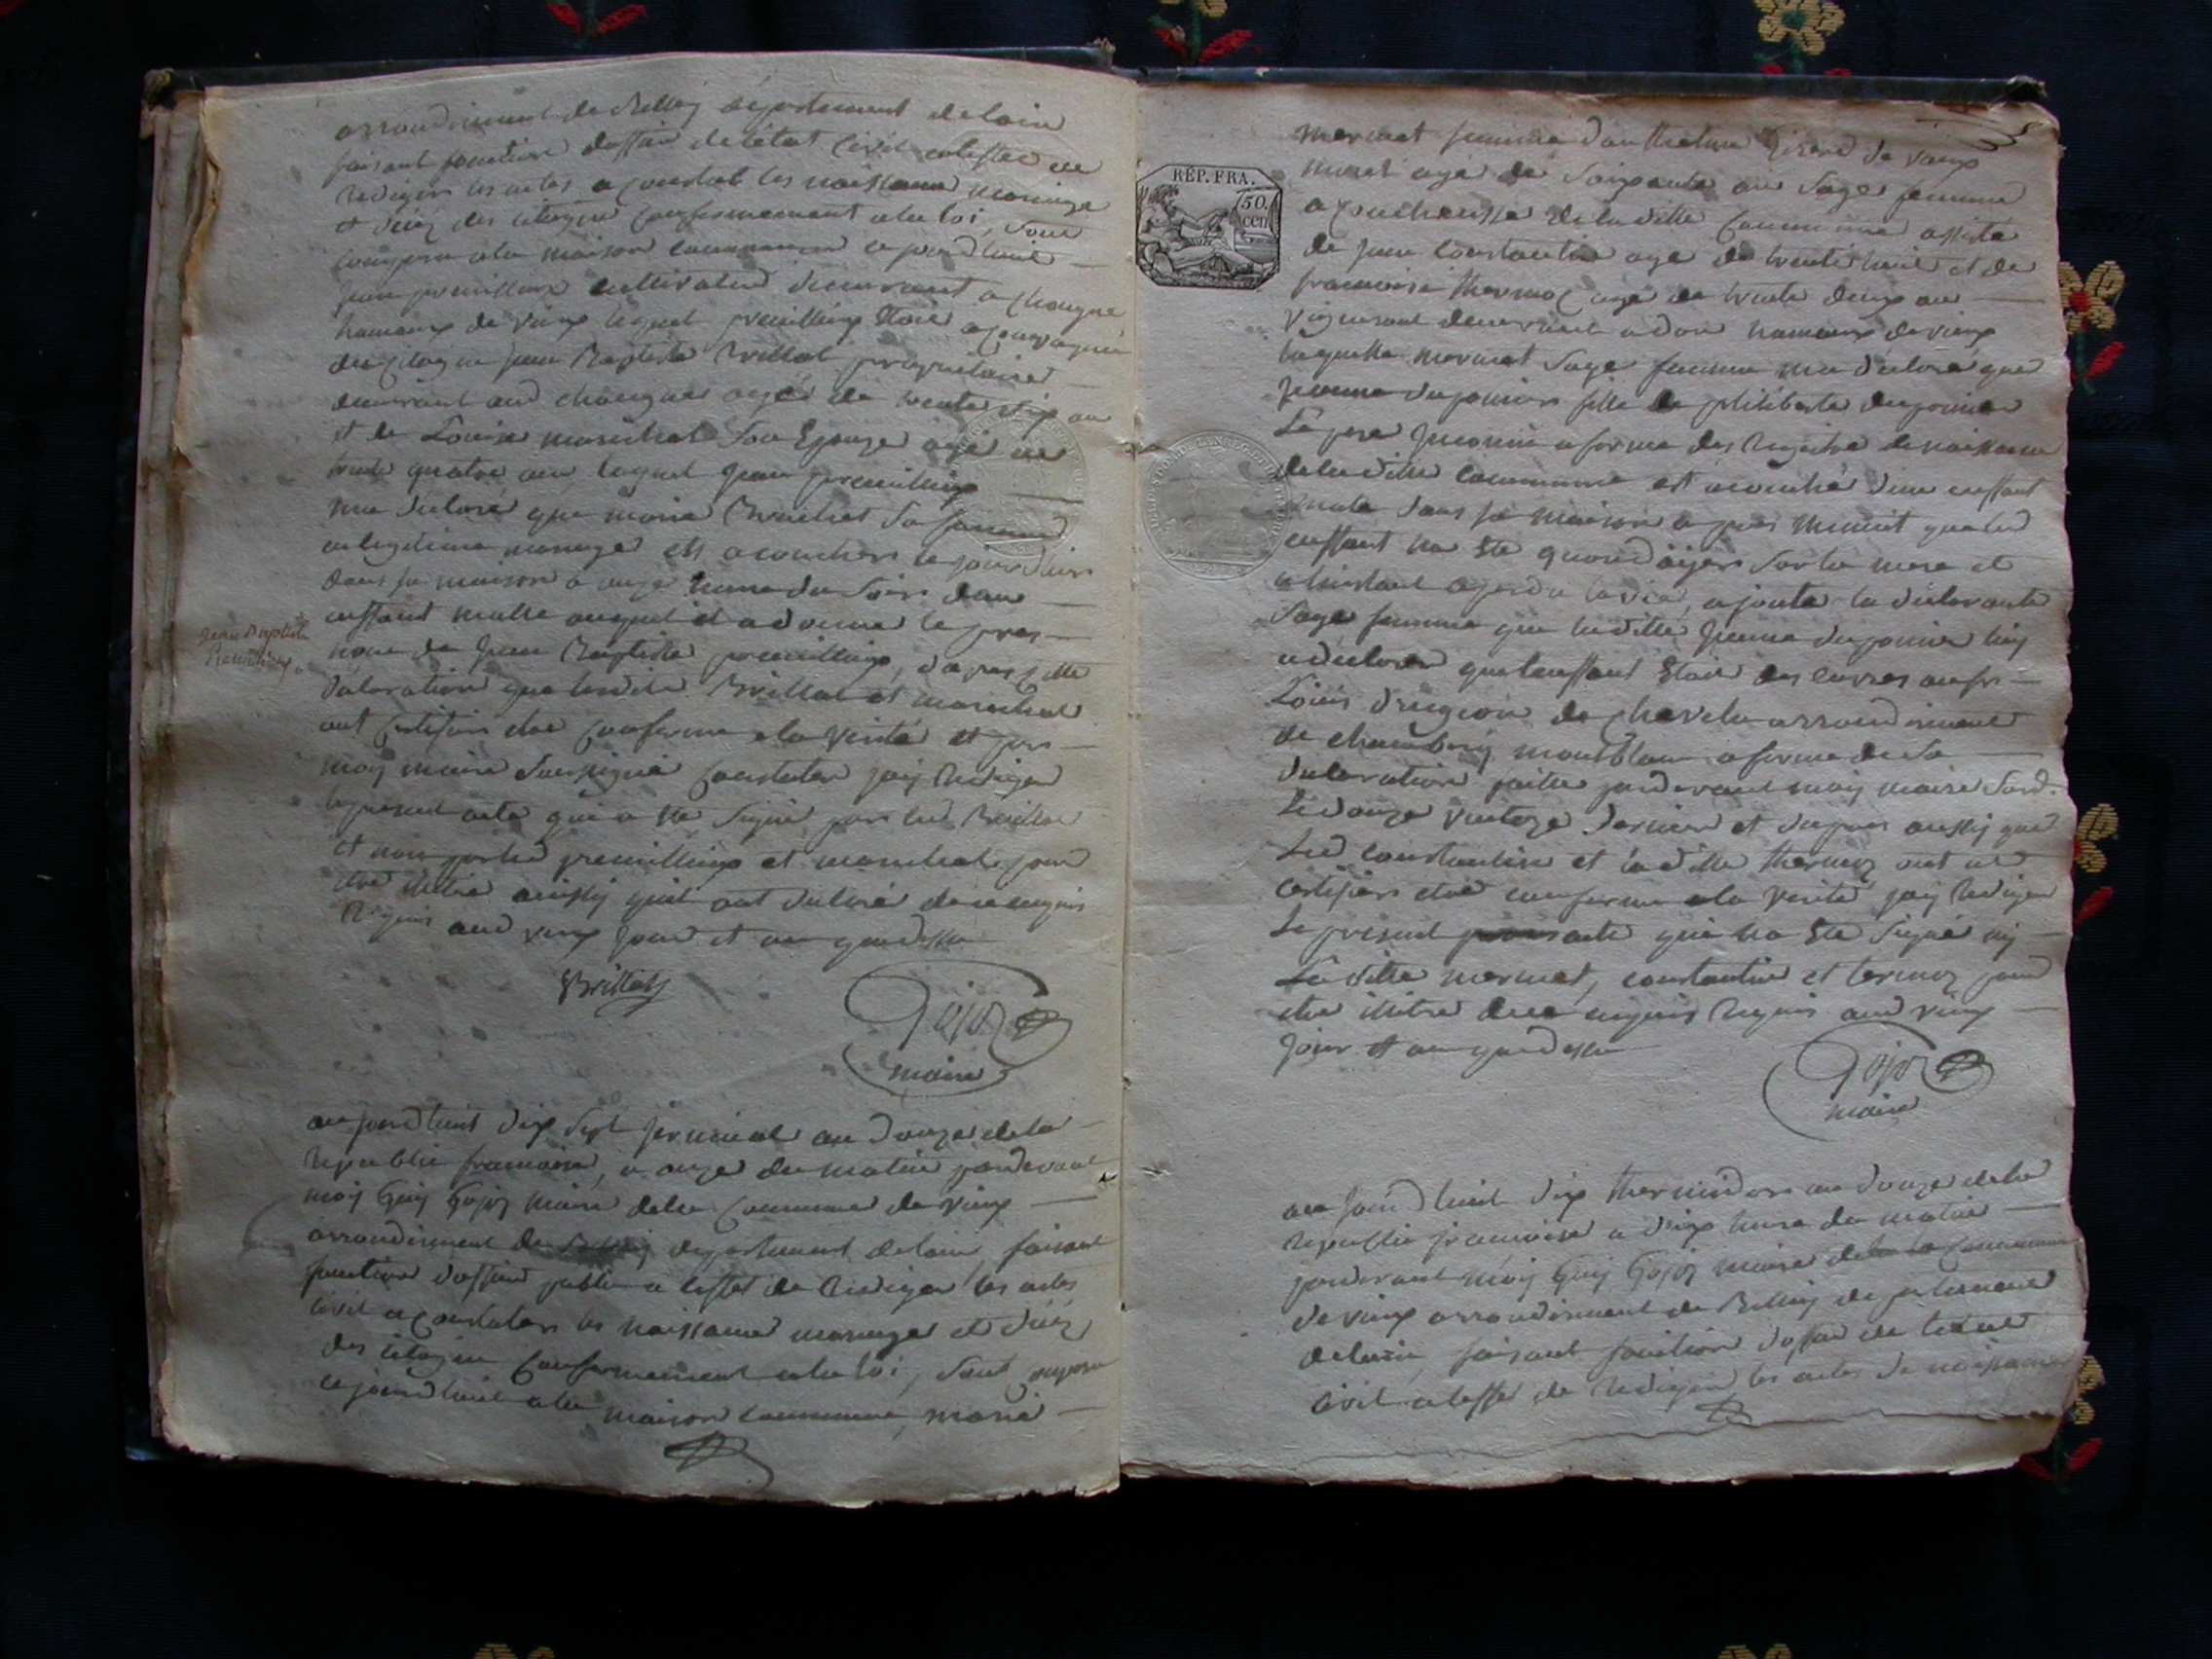 arrondissement de Belley département de lain
faisant fonction doffier de létat Civil
Rediger les actes a constat les naissance mariage
et des citoyen Conformement ala loi, sont
ala maison commune ce jourdhuit
jean premillieux cultivateur demeurant a chougne
hameaux de vieux lequel premillieux acompagné
du citoyen jean Baptiste Brillat propriétaire
demeurant aud chougne agée de trente six an
et de Louise marechal Son Epouze agé de
trente quatre an, lequel jean premillieux
ma déclaré que marie Son femme
en legitime mariage est acoucher ce jourdhuis
dans sa maison a onze heure du Soir dun
enffant malle auquel il a donné le pres
nom de jean Baptiste premillieux, dapres
Jean Baptiste
Premillieux
déclaration que Brillat et marechal
ont Certifier etre Conforme ala Verité et par
moy maire Soussigné Constater jay Rediger
le present acte qui a été Signé par led Brillat
et non par led premillieux et marechal pour
etre ilitré ainsy quil ont declaré de ce enquis
Requis aud vieux jour et an que dessu
Brillat
Gojoz
maire
aujourdhuit dix sept jerminal an douze de la
Republic francoise, a onze du matin pardevant
moy Guy Gojoz maire de la Commune de vieux
arrondisement de Belley departement de lain, faisant
fonction doffier public a leffet de Rediger les actes
civil a constater les naissance mariage et décéz
des citoyen Conformement ala loi, sont
ce jourdhuit ala maison commune, marie
RÉP. FRA.
50.
cen
mermet femme danthelme de vieux
agé de Soixante an Sage femme
acoucheusse de la ditte Commune assisté
de jean constantin agé de trente huit et de
francoise thermoz agé de trente deux an
demeurant a don hameaux de vieux
laquelle mermet Sage femme ma déclaré que
jeanne dujounier fille de philiberte dujounier
Le pere inconnu a forme des Registre de naissance
de la ditte commune est acouché dun enffant
male dans Sa maison a pres minuit que led
enffant na été quondoyer Sur la mere et
a linstant a perdu la vie, ajoute la declarante
Sage femme que laditte jeanne dujounier luy
a declarer que lenffant Etoit des euvres aufr
Louis de Chavelu arrondisement
de chambery montblanc a forme de Sa
declaration faitte pardevant moy maire Soud.
Le douze vintoze dernier et depuis aussy que
Led constantin et la ditte thermoz ont
certifier etre conforme ala verité jay Rediger
Le present acte qui na été Signé ny
La ditte mermet, constantin et termoz pour
etre ilitré de ce enquis Requis aud vieux
jour et an que dessu
Gojoz
maire
au jourdhuit dix thermidor an douze de la
Republic francoise a dix heure du matin
pardevant moy Guy Gojoz maire de la commune
de vieux arrondisement de Belley departement
de lain, faisant fonction doffier de létat
civil a leffet de Rediger les actes de naissance